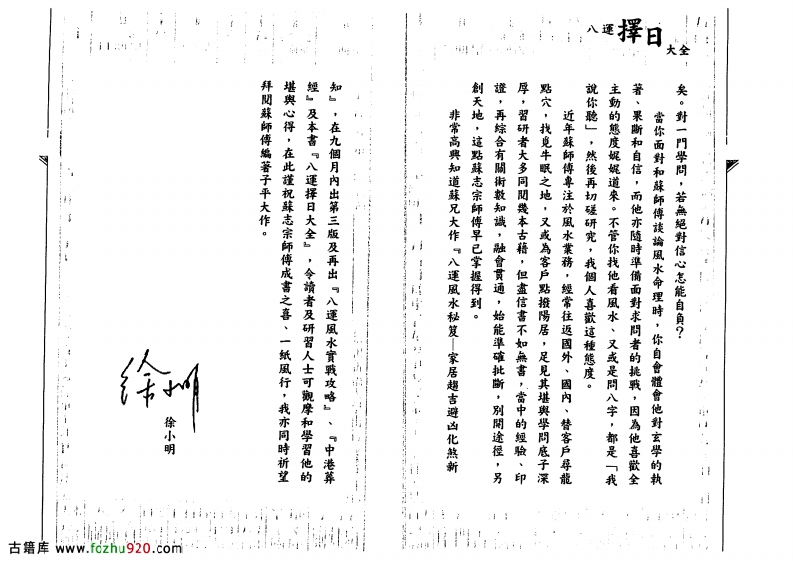 八運擇日大全
矣。對一門學問，若無絕對信心怎能自負？
當你面對和蘇師傅談論風水命理時，你自會體會他對玄學的執
著、果斷和自信，而他亦隨時準備面對求問者的挑戰，因為他喜歡全
主動的態度娓娓道來。不管你找他看風水、又或是問八字，都是「我
說你聽」，然後再切磋研究，我個人喜歡這種態度。
近年蘇師傅專注於風水業務，經常往返國外、國內、替客戶尋龍
點穴，找覓牛眠之地，又或為客戶點撥陽居，足見其堪與學問底子深
厚，習研者大多同閱幾本古籍，但盡信書不如無書，當中的經驗、印
證，再綜合有關術數知識，融會貫通，始能準確批斷，別開途徑，另
創天地，這點蘇志宗師傅早已掌握得到。
非常高興知道蘇兄大作『八運風水秘笈—家居趨吉避凶化煞新
知』，在九個月內出第三版及再出『八運風水實戰攻略』、『中港葬
經』及本書『八運擇日大全』，令讀者及研習人士可觀摩和學習他的
堪與心得，在此謹祝蘇志宗師傅成書之喜、一紙風行，我亦同時祈望
拜閱蘇師傅編著子平大作。
徐小明
徐小明
古籍库 www.fczhu920.com